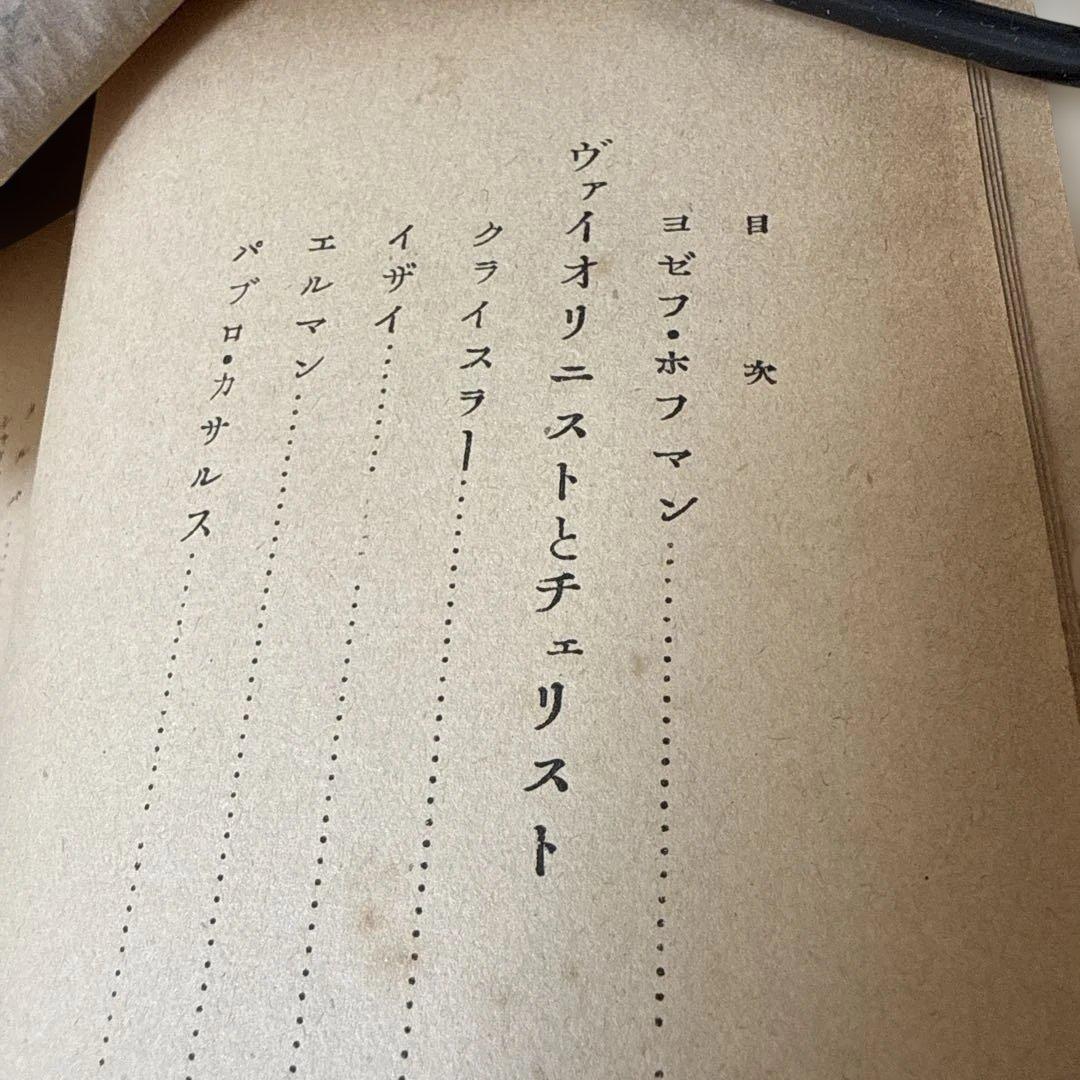 目次
ヨゼフ・ホフマン
ヴァイオリニストとチェリスト
クライスラー
イザイ
エルマン
パブロ・カサルス